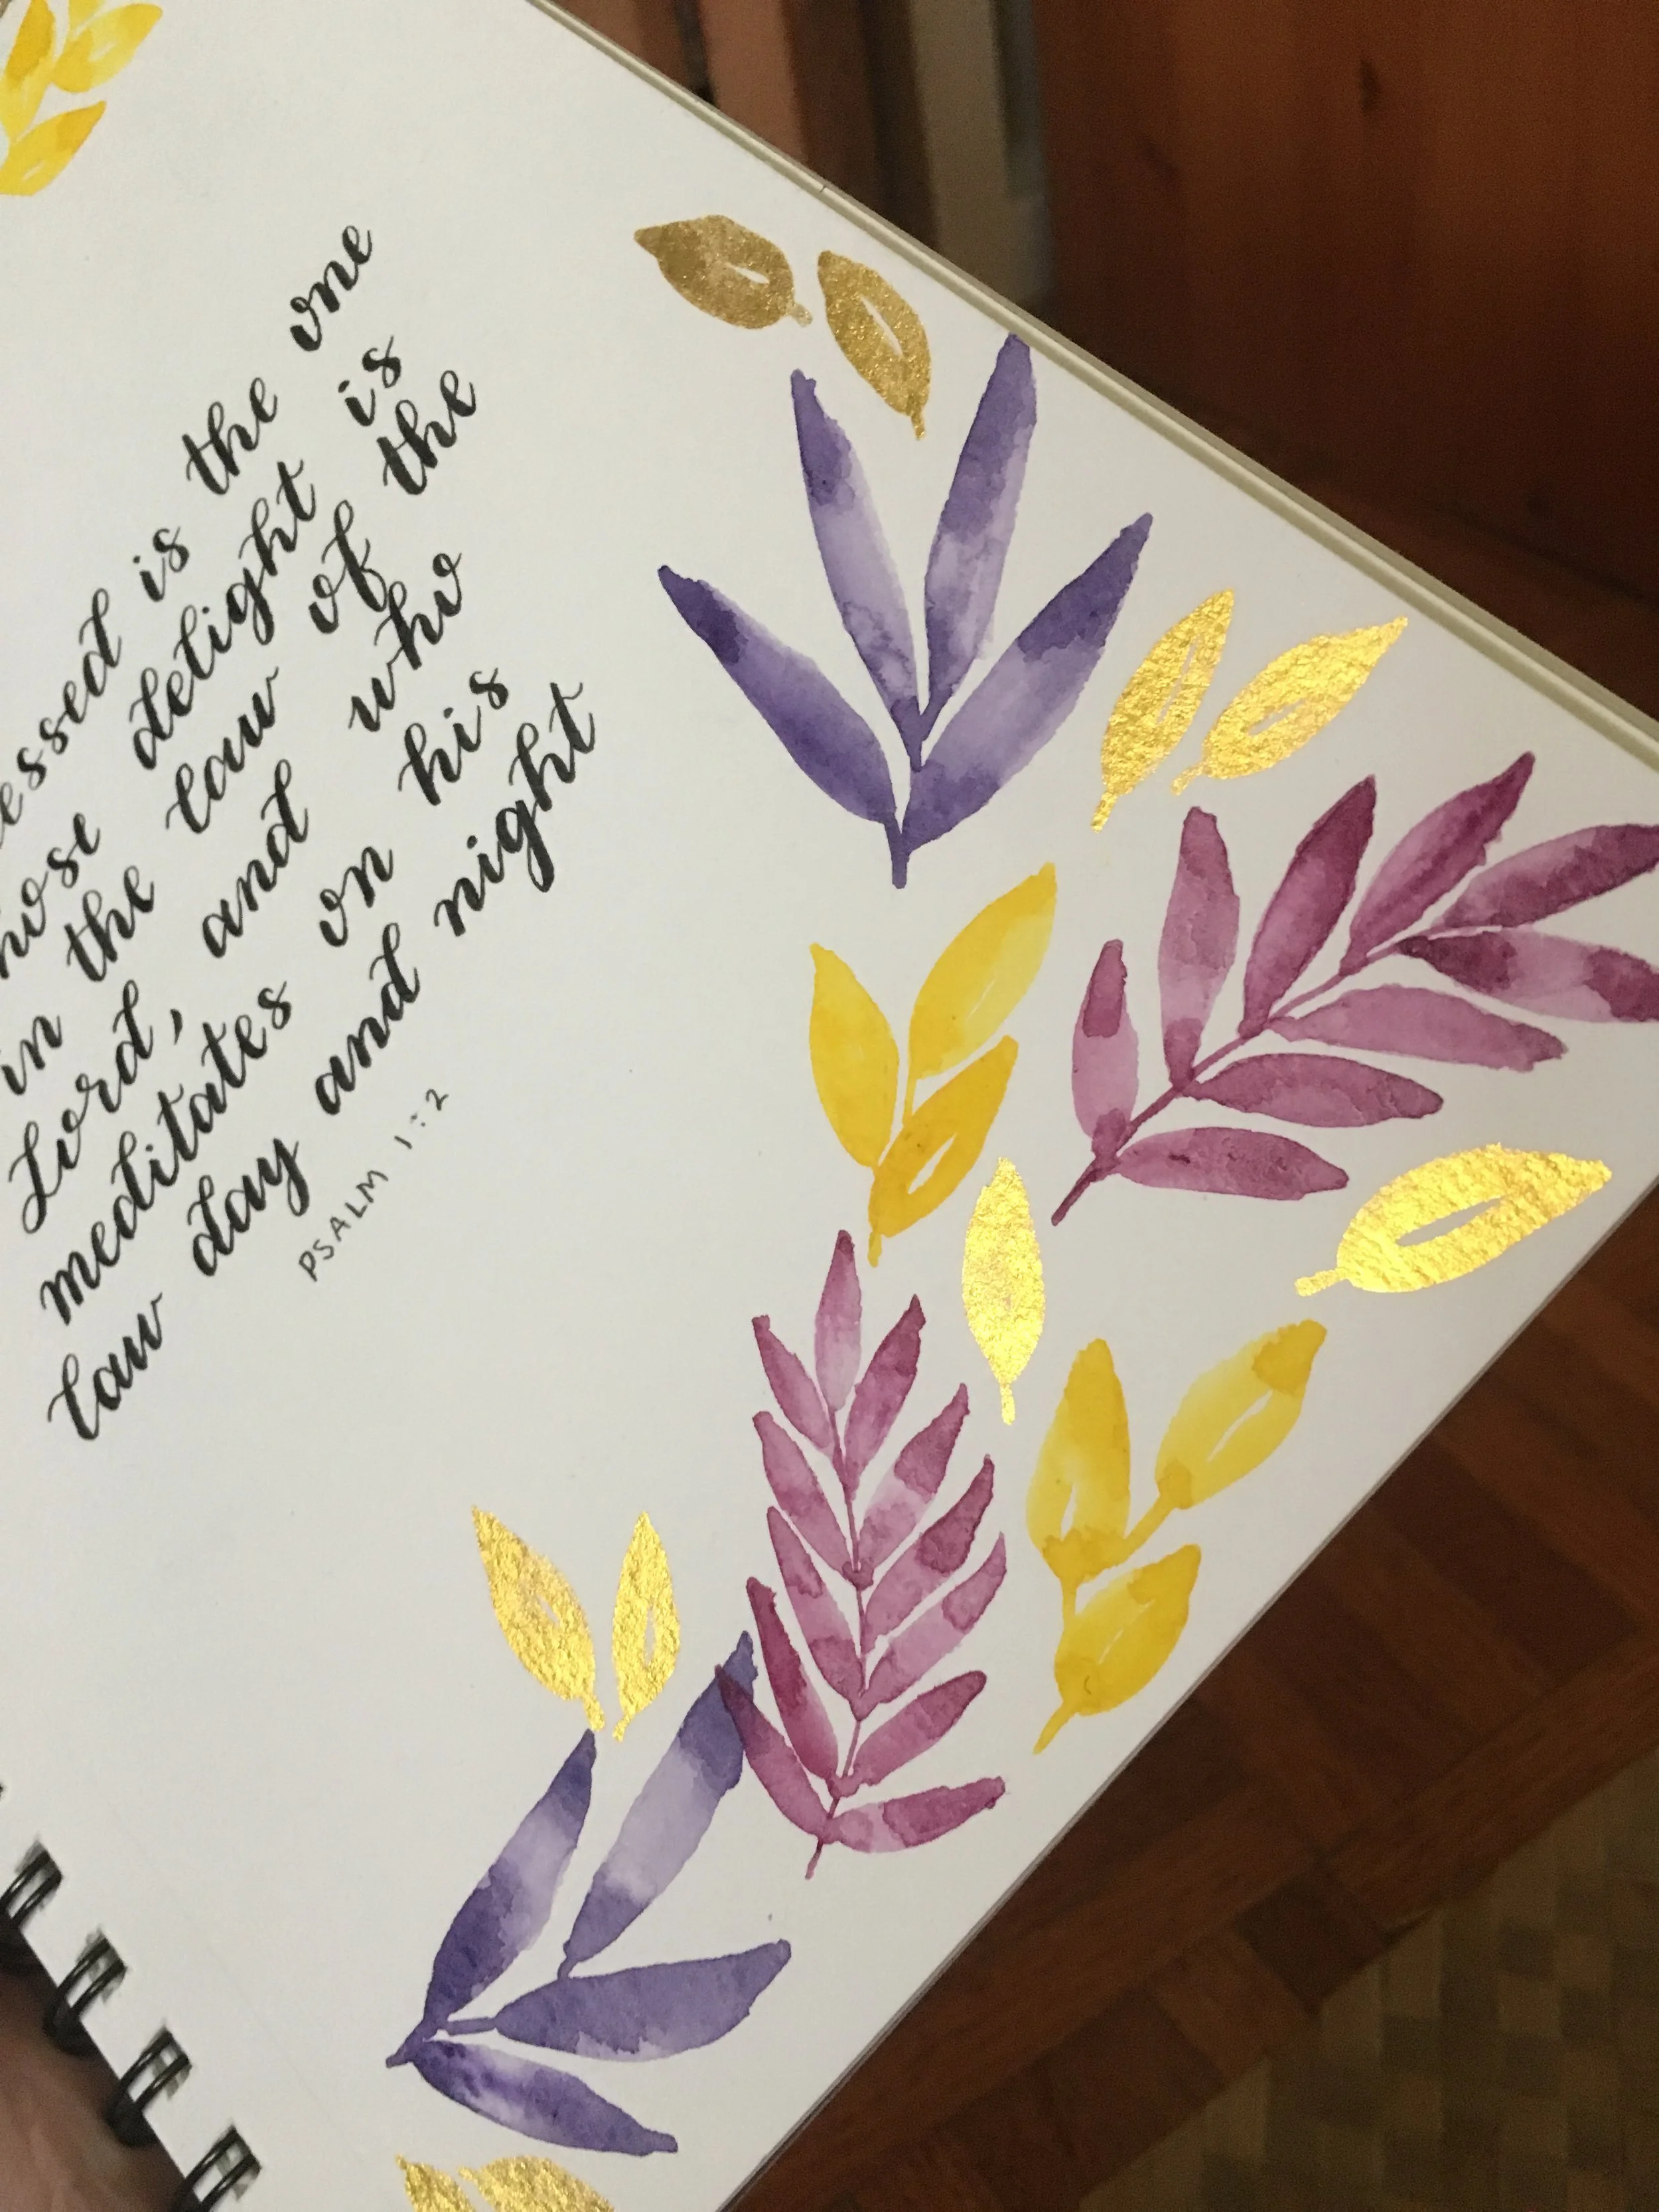 essed is the one
hose delight is
in the law of the
Lord, and who
meditates on his
law day and night
PSALM 1:2